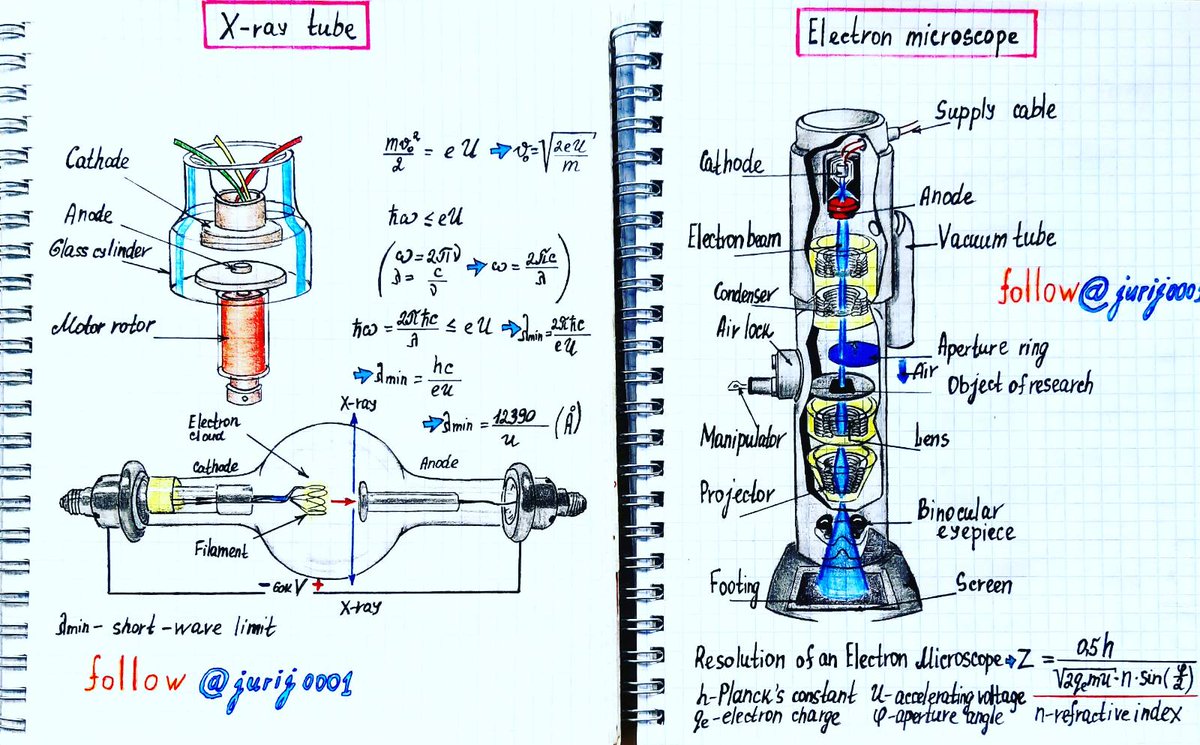 X-ray tube
Cathode
Anode
Glass cylinder
Motor rotor
mv₀²/2 = eU ➡ v₀ = √(2eU/m)
ħω ≤ eU
(ω = 2πν
λ = c/ν ➡ ω = 2πc/λ)
ħω = 2πħc/λ ≤ eU ➡ λmin = 2πħc/eU
➡ λmin = hc/eU
➡ λmin = 12390/u (Å)
X-ray
Electron
cloud
Cathode
Anode
Filament
- 60K V +
X-ray
λmin - short-wave limit
follow @jurij0001
Electron microscope
Supply cable
Cathode
Anode
Electron beam
Vacuum tube
follow @jurij0001
Condenser
Air lock
Aperture ring
Air
Object of research
Manipulator
Lens
Projector
Binocular
eyepiece
Footing
Screen
Resolution of an Electron Microscope ➡ Z = 0,5h/(√(2qₑmu)·n·sin(φ/2))
h-Planck's constant U-accelerating voltage
qₑ-electron charge φ-aperture angle n-refractive index